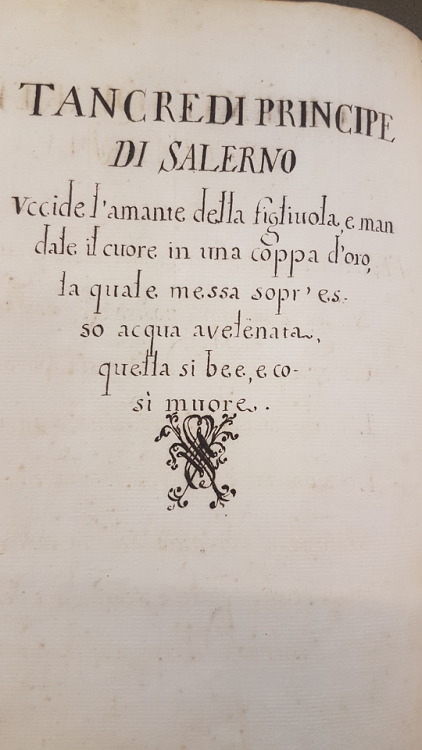 TANCREDI PRINCIPE
DI SALERNO
Vccide l'amante della figliuola, e man
dale il cuore in una coppa d'oro,
la quale messa sopr' es-
so acqua avelenata,
quella si bee, e co-
sì muore.